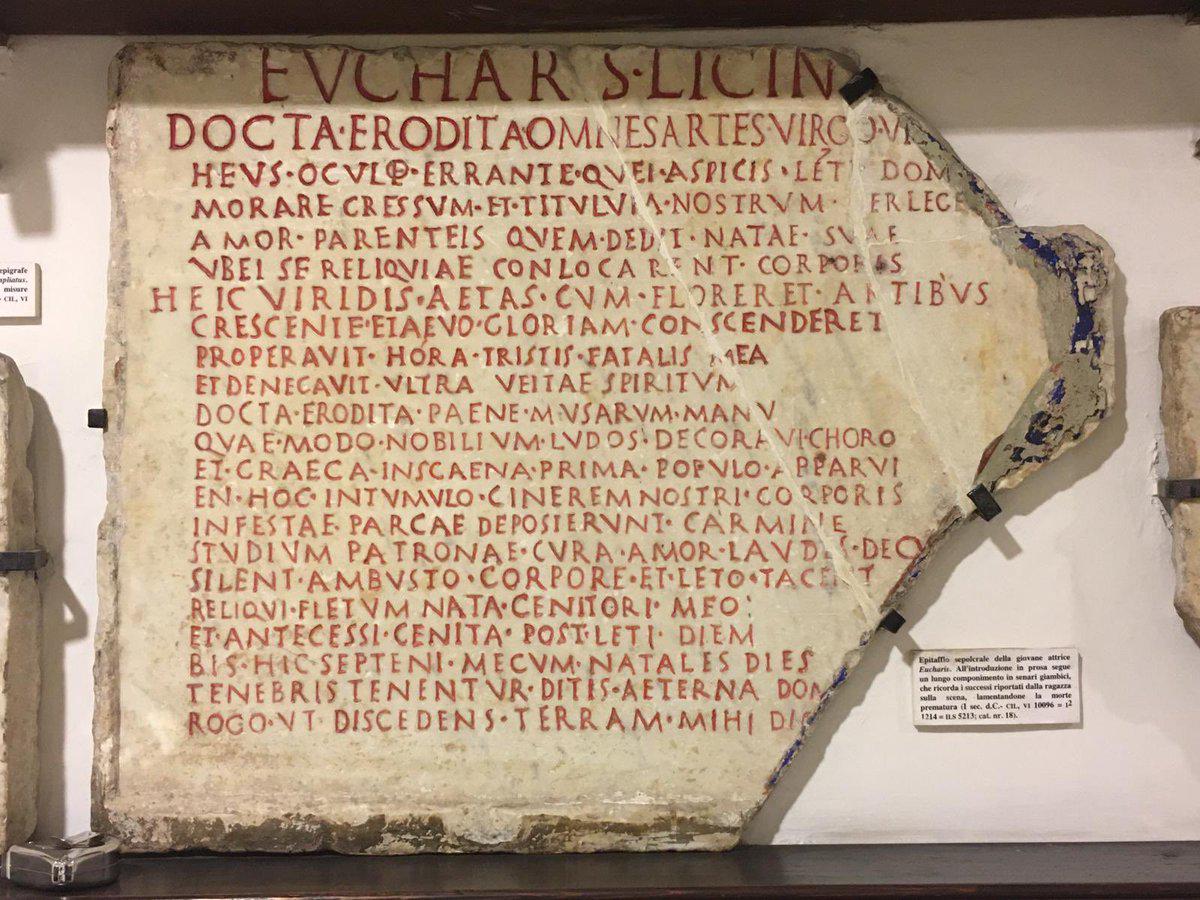 EVCHAR S·LICIN
DOCTA·ERODITA·OMNES·ARTES·VIRGO·VI
HEVS·OCVLO·ERRANTE·QVEI·ASPICIS·LÉTI DOM
MORARE GRESSVM·ET·TITVLVM·NOSTRVM· ERLEGE
AMOR·PARENTEIS QVEM·DEDIT·NATAE·SVAE
VBEI SE RELIQVIAE CONLOCARENT·CORPORIS
HEIC VIRIDIS·AETAS·CVM·FLORERET·ARTIBVS
CRESCENTE·ET AEVO·GLORIAM·CONSCENDERET
PROPERAVIT·HÓRA·TRISTIS·FATALIS MEA
ET DENEGAVIT·VLTRA VEITAE SPIRITVM
DOCTA·ERODITA·PAENE·MVSARVM·MANV
QVAE·MODO·NOBILIVM·LVDOS·DECORAVI·CHORO
ET·GRAECA·IN SCAENA·PRIMA·POPVLO·APPARVI
EN·HOC·IN TVMVLO·CINEREM NOSTRI·CORPORIS
INFESTAE·PARCAE DEPOSIERVNT·CARMINE
STVDIVM PATRONAE·CVRA·AMOR·LAVDES·DECV
SILENT·AMBVSTO·CORPORE·ET·LETO·TACENT
RELIQVI·FLETVM NATA·GENITORI·MEO
ET·ANTECESSI·GENITA·POST·LETI·DIEM
BIS·HIC·SEPTENI·MECVM·NATALES DIES
TENEBRIS TENENTVR·DITIS·AETERNA DOM
ROGO·VT DISCEDENS·TERRAM·MIHI DIC
epigrafe
mpliatus.
misure
CIL, VI
Epitaffio sepolcrale della giovane attrice
Eucharis. All'introduzione in prosa segue
un lungo componimento in senari giambici,
che ricorda i successi riportati dalla ragazza
sulla scena, lamentandone la morte
prematura (I sec. d.C.- CIL, VI 10096 = I²
1214 = ILS 5213; cat. nr. 18).